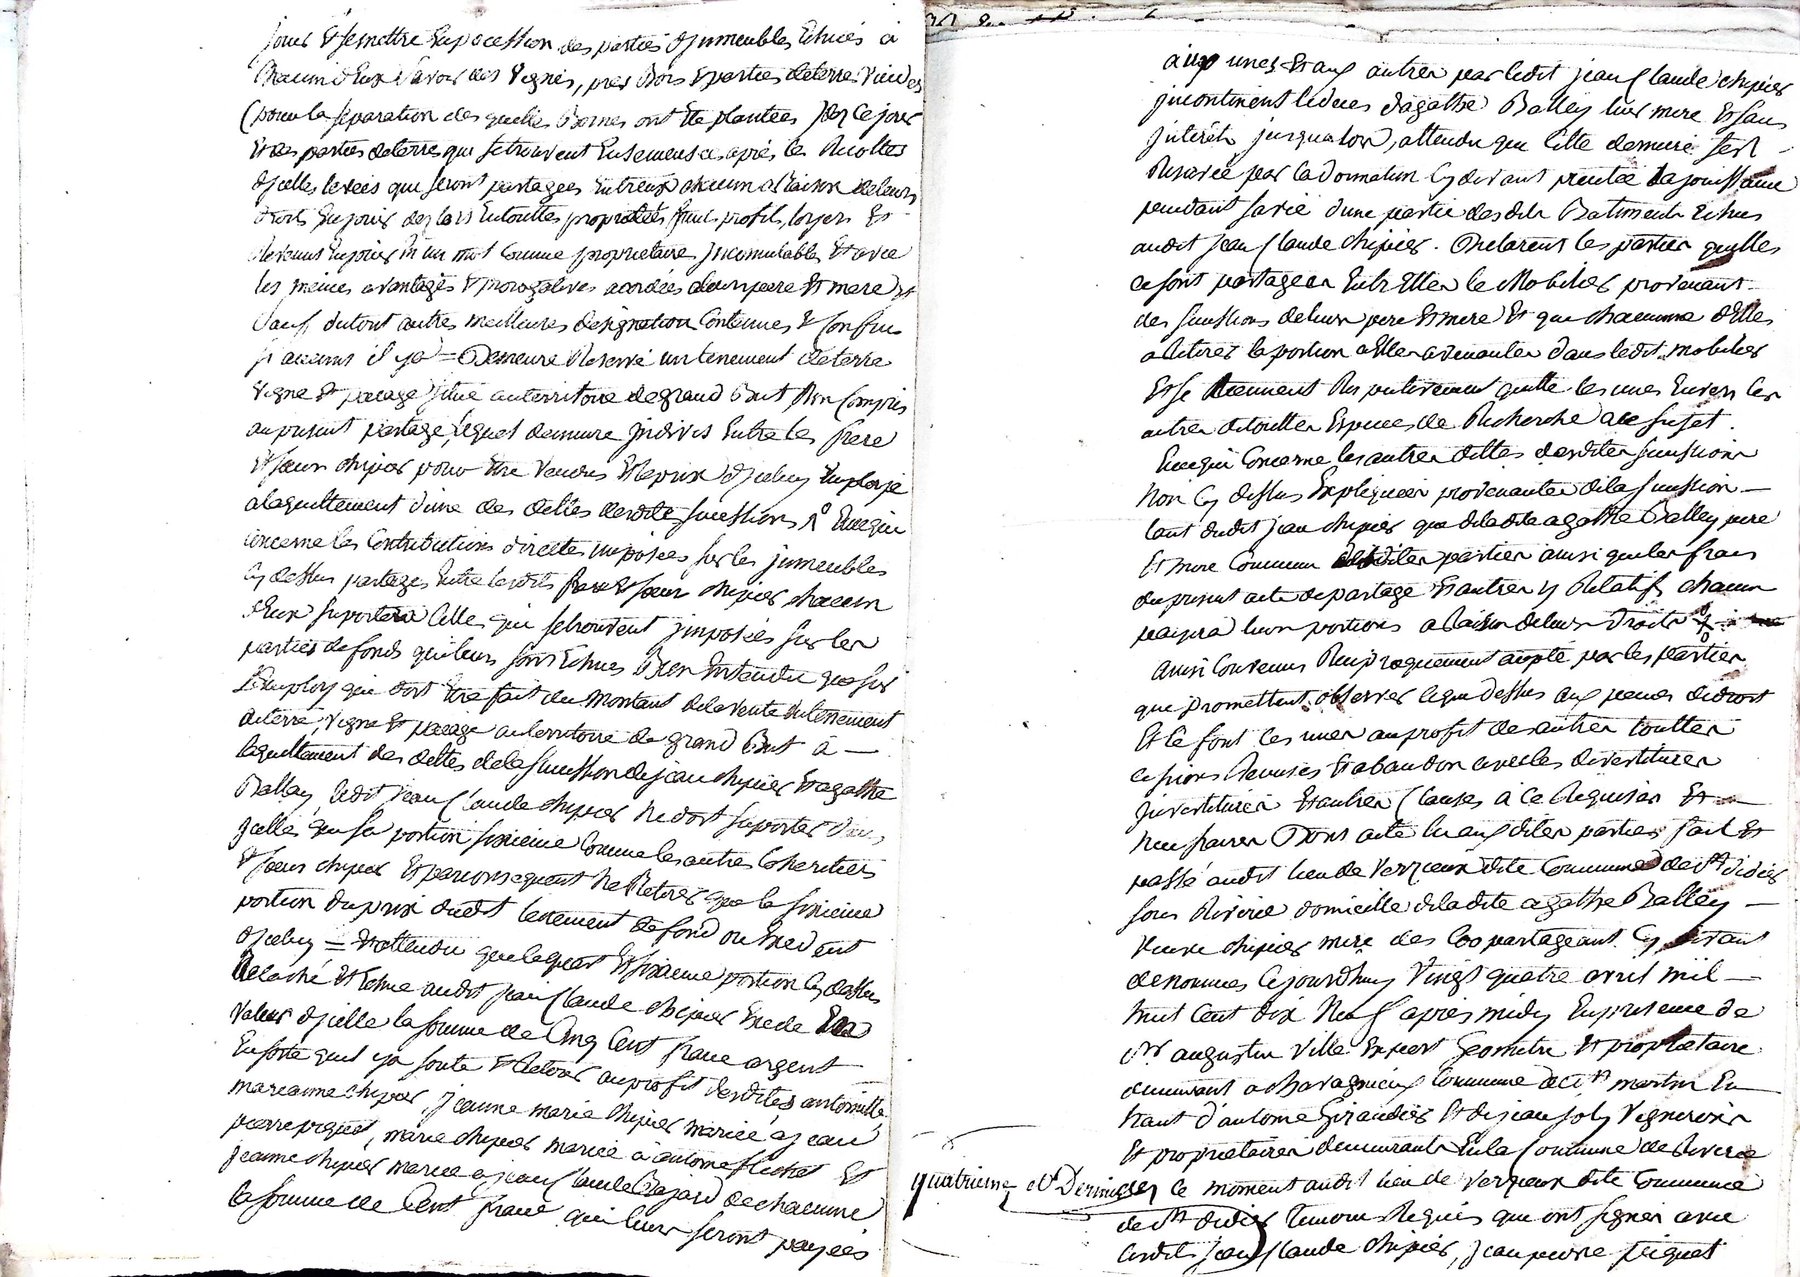 jouir et se mettre en pocession des partiés d'jmmeubles Echües à
Chacun d'Eux Savoir des vignes, prés Bois et parties de terre vuides
(pour la séparation des quelles Bornes ont Eté plantées par ce jour
et des parties de terre qui se trouvent Ensemensées après les Récoltes
d'jcelles levées qui seront partagées Entreux chacun a Raison de leurs
droits En jouir dez lors En touttes proprietés fruits profits, loyers Et
Revenus En jouir En un mot Comme proprietaire jncomutables Et avec
les mêmes avantages et prerogatives acordées a leurs pere et mere et
sauf du tout autres meilleures designation Contenues et Confins
si aucuns il ya = Demeure Reservé un tenement de terre
vigne et pacage situé au territoire de grand But Non Compris
au present partage, lequel demeure jndivis Entre les frere
et sœurs chipier pour être vendus et le prix d'jceluy Employé
a laquittement d'une des dettes desdittes sucessions Ence qui
concerne les Contributions directes imposées sur les jmmeubles
cy dessus partagés Entre lesdits frere et sœurs chipier, chacun
d'Eux suportera Celles qui se trouvent jmposées sur les
parties de fonds qui leurs sont Echues Bien Entendu que sur
L'Employ qui doit être fait du montant de la vente du tenement
de terre, vigne et pacage au territoire de grand But à —
laquittement des dettes de la sucession de jean chipier et agathe
Balley, ledit jean Claude chipier ne doit suporter dans
jcelles que sa portion sixieme Comme les autres Coheritiers
et sœurs chipier Et par consequent Ne Retirer que la sixieme
portion du prix dudit tenement de fond ou Excedent
d'jceluy = Et attendu que la quart Et sixieme portion cy dessus
Relaché et Echue audit jean Claude chipier Excede En
valeur d'jcelle la somme de Cinq Cent franc argent
En sorte quil ya soute et Retour au profit desdites antoinette,
marianne chipier jeanne marie chipier mariée à jean
pierre piguet, marie chipier mariée à antoine flechet Et
jeanne chipier mariée a jean Claude Bajard de chacune
la somme de Cent franc qui leurs seront payées
aux unes Et aux autres par ledit jean Claude chipier
jncontinent le deces d'agathe Balley leur mere Et sans
jnterêts jusqualors, attendu que cette derniere s'est
Réservée par la donnation cy devant précitée la jouissance
pendant sa vie d'une partie des dits Batiments Echus
audit jean Claude chipier. Déclarent les parties quelles
ce sont partagées Entr'Elles le Mobilier provenant
des sucessions de leurs pere Et mere Et que chacunne d'Elles
a Retirés la portion a Elle avenantes dans ledit mobilier
Et se tiennent Respectivement quitte les unes Envers les
autres de touttes Especes de Recherche a ce sujet.
Ence qui Concerne les autres dettes desdites sucessions
Non cy dessus Expliquées provenantes de la sucession —
tant dudit jean chipier que de ladite agathe Balley pere
Et mere Commun desdites parties ainsi que les frais
du present acte de partage Et autres y Relatifs, chacun
payera leurs portions a Raison de leurs Droits
ainsi Convenus Reciproquement acepté par les parties
que promettent observer ce que dessus aux peines de droit
Et ce font les unes au profit des autres touttes
cessions Remises Et abandon avec les devestitures
jnvestitures Et autres Clauses à ce Requises Et —
Necessaires Dont acte lu aux dites parties fait Et
passé audit lieu de verzieux dite Commune de St didier
sous Riverie domicille de ladite agathe Balley —
veuve chipier mere des Coopartageant cy devant
denommés Cejourdhuy vingt quatre avril mil —
huit Cent dix Neuf après midy En presence de
Sr augustin Ville Expert Geometre Et proprietaire
demeurant a chavagnieux Commune de St martin En
haut d'antoine Giraudier Et de jean joly vignerons
Et proprietaires demeurants En la Commune de Riverie
quatrieme et Dernier
ce moment audit lieu de verzieux dite Commune
de St didier temoins Requis que ont signés avec
lesdits jean Claude chipier, jean pierre piguet